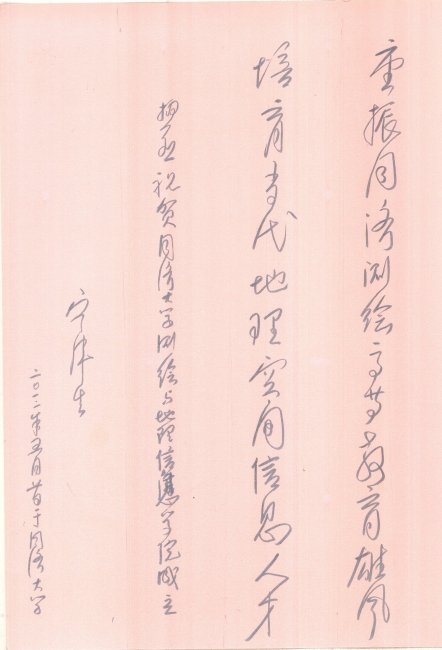 重振同济测绘高等教育雄风
培育当代地理空间信息人才
热烈祝贺同济大学测绘与地理信息学院成立
宁津生
二〇一二年五月 于同济大学